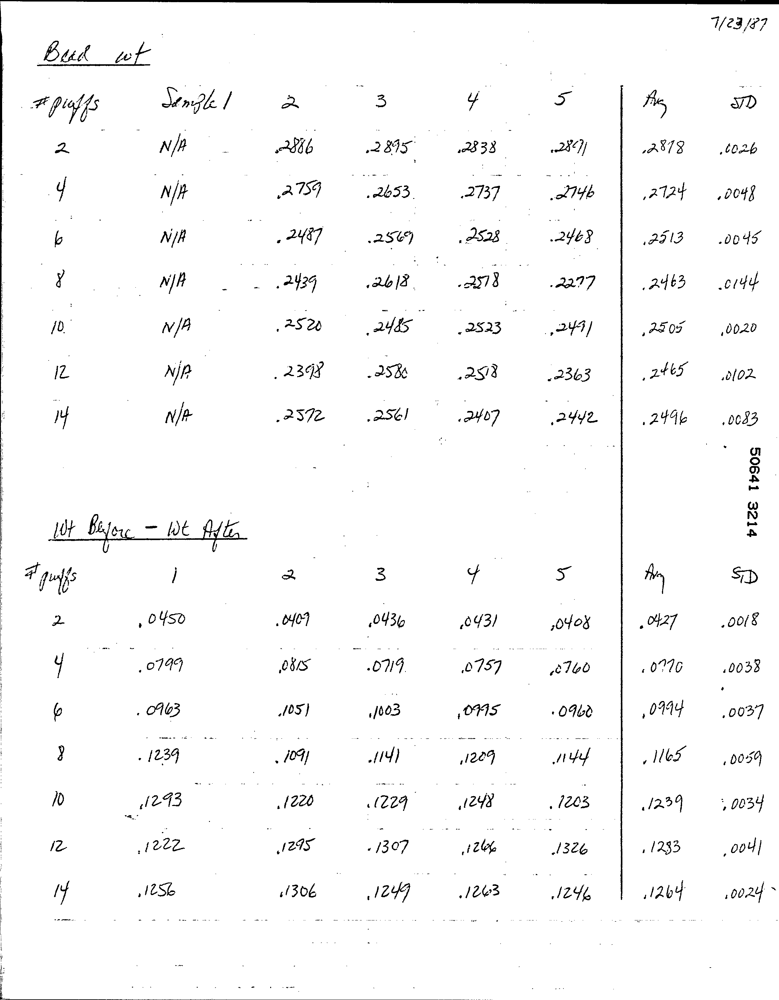 7/23/87
Bead wt
# puffs Sample 1 2 3 4 5 Avg STD
2 N/A .2886 .2895 .2838 .2891 .2878 .0026
4 N/A .2759 .2653 .2737 .2746 .2724 .0048
6 N/A .2487 .2569 .2528 .2468 .2513 .0045
8 N/A .2439 .2618 .2518 .2277 .2463 .0144
10 N/A .2520 .2485 .2523 .2491 .2505 .0020
12 N/A .2398 .2580 .2518 .2363 .2465 .0102
14 N/A .2572 .2561 .2407 .2442 .2496 .0083
50641 3214
Wt Before - Wt After
# puffs 1 2 3 4 5 Avg STD
2 .0450 .0409 .0436 .0431 .0408 .0427 .0018
4 .0799 .0815 .0719 .0757 .0760 .0770 .0038
6 .0963 .1051 .1003 .0995 .0960 .0994 .0037
8 .1239 .1091 .1141 .1209 .1144 .1165 .0059
10 .1293 .1220 .1229 .1248 .1203 .1239 .0034
12 .1222 .1295 .1307 .1266 .1326 .1283 .0041
14 .1256 .1306 .1249 .1263 .1246 .1264 .0024